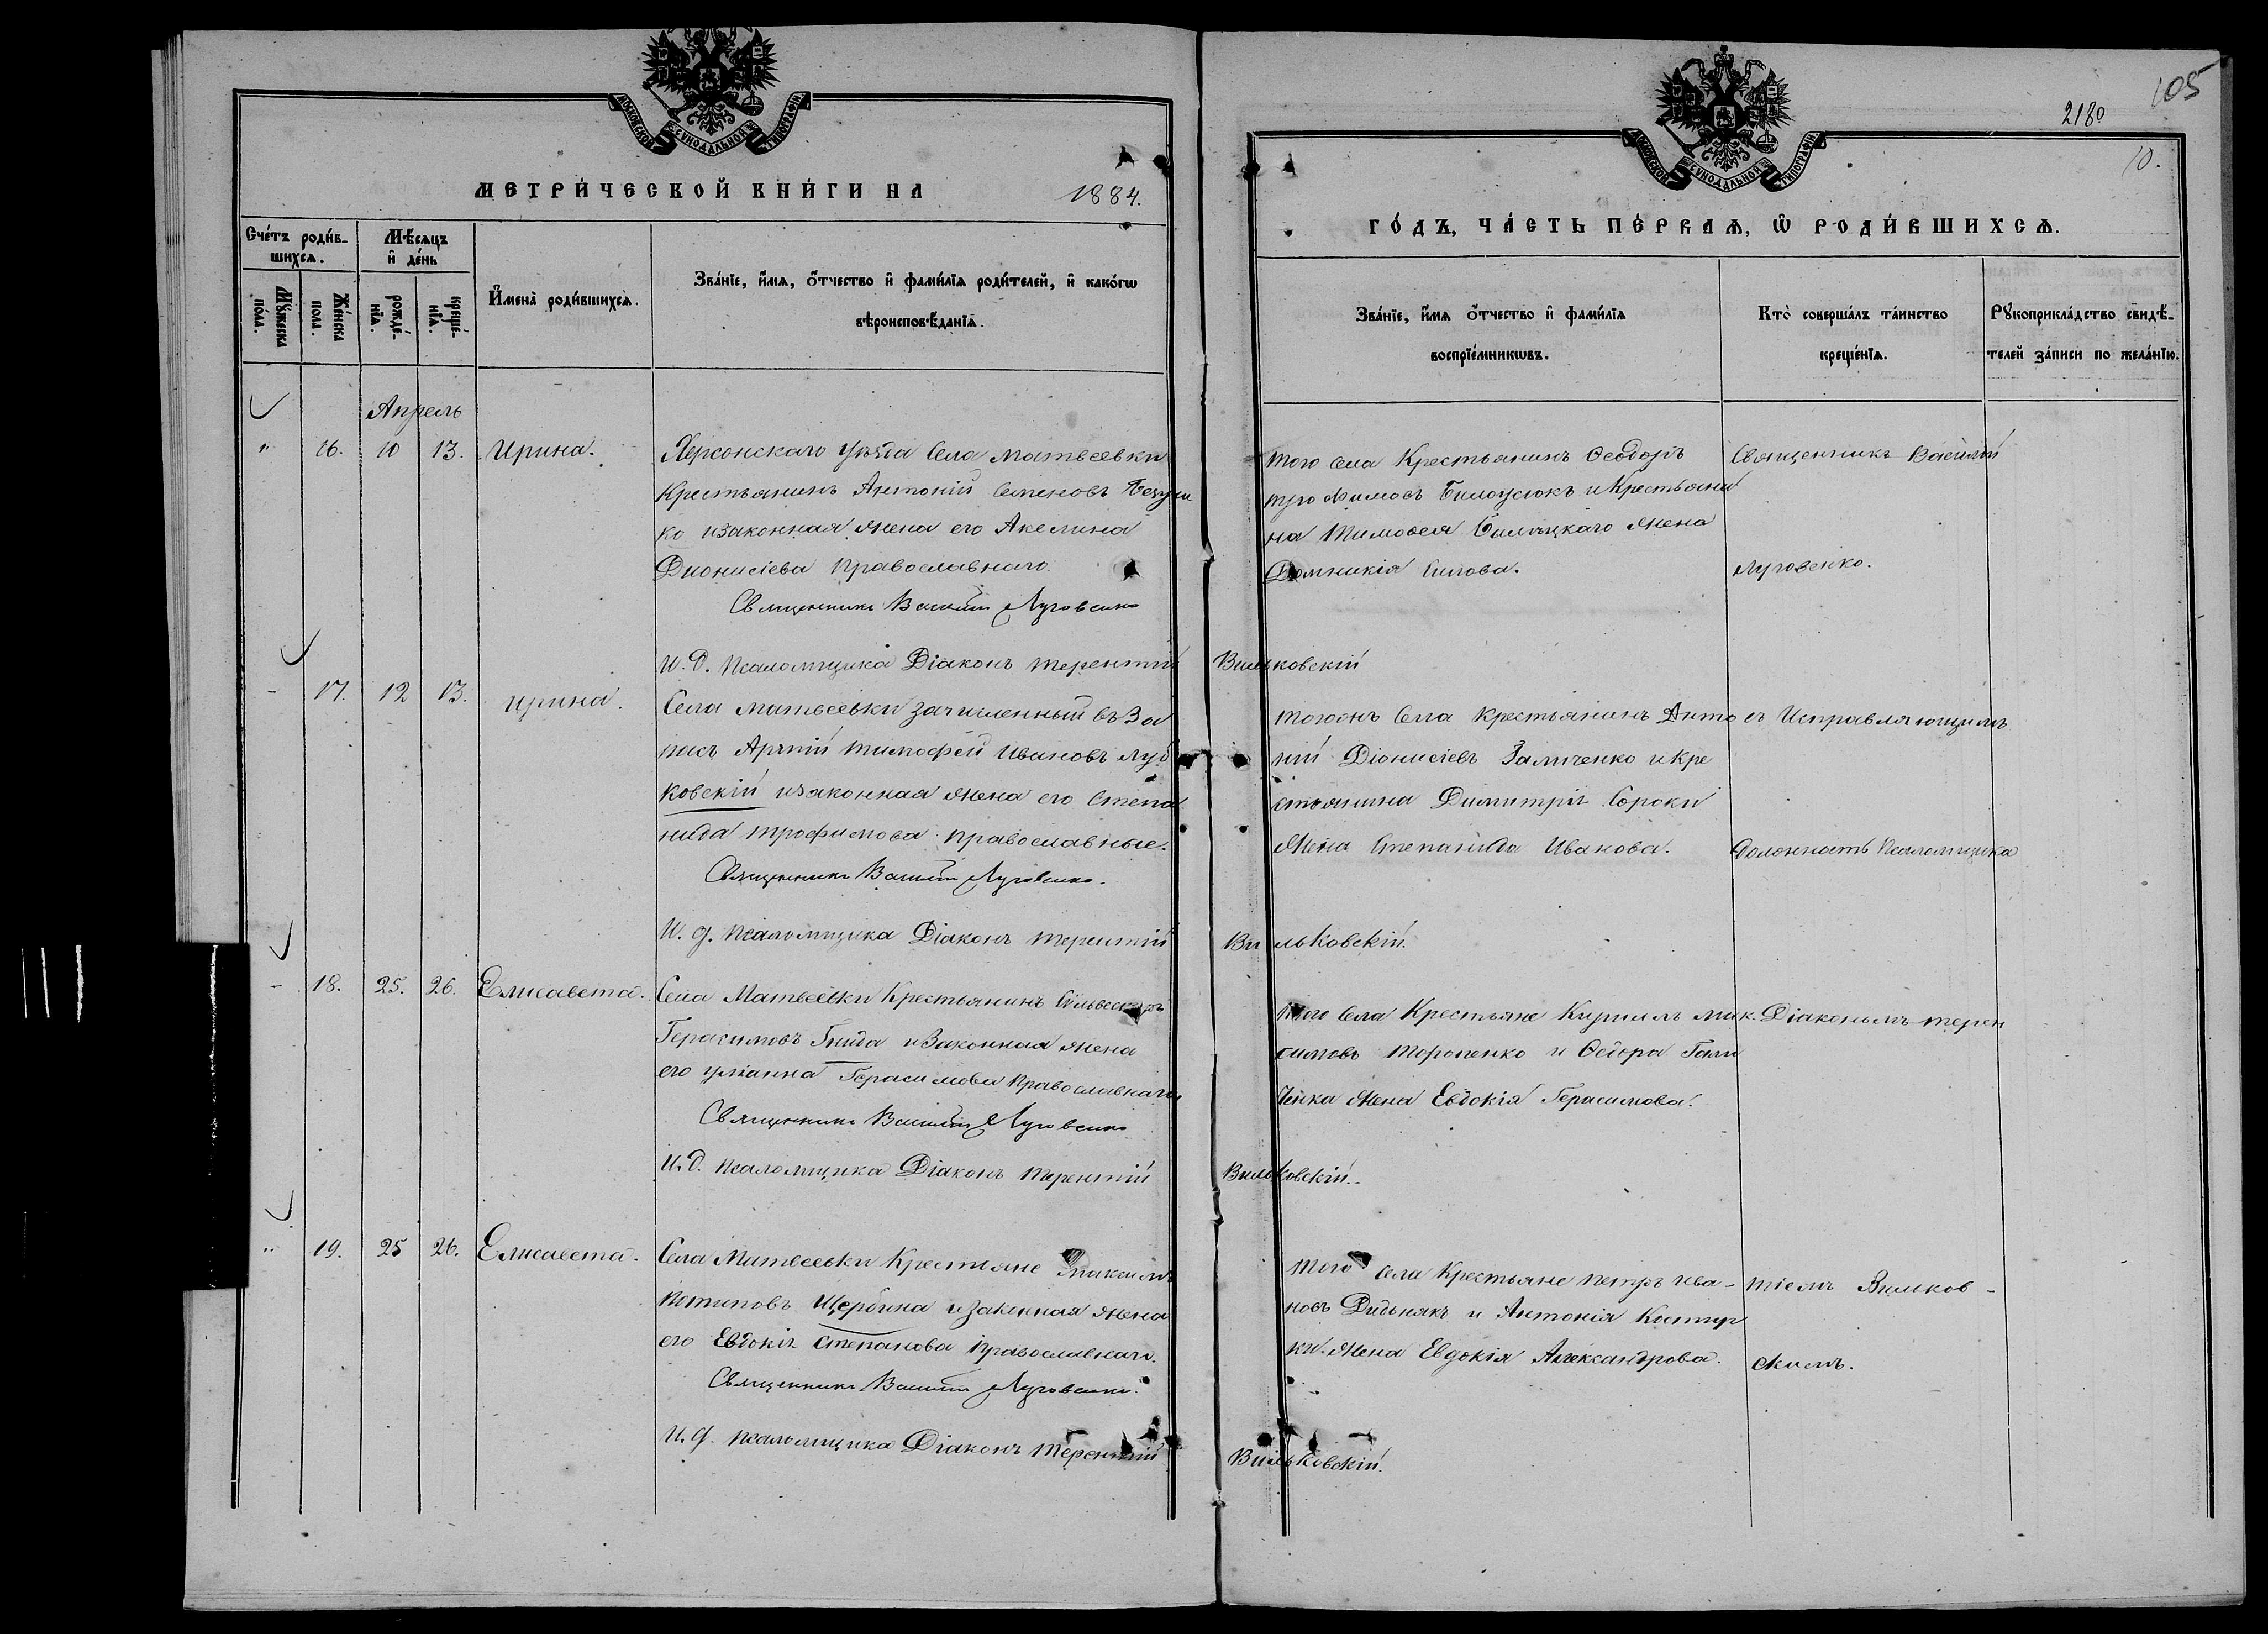 МОСКОВСКОЙ СѴНОДАЛЬНОЙ ТИПОГРАФІИ
МЕТРИ́ЧЕСКОЙ КНИ́ГИ НА 1884.
Сче́тъ роди́в-
шихсѧ.
Мѣ́сѧцъ
и҆ де́нь
Мꙋ́жеска
по́ла.
Же́нска
пола.
рожде́-
нїѧ.
креще́-
нїѧ.
И҆мена̀ роди́вшихсѧ.
Зва́нїе, и҆́мѧ, о҆́тчество и҆ фами́лїѧ роди́телей, и҆ како́гѡ
вѣроисповѣ́данїѧ.
Апрель
" 16. 10 13. Ирина.
Херсонскаго уѣзда Села Матвеевки
Крестьянинъ Антоній Семеновъ
ко изаконная жена его Акелина
Дионисіева Православнаго
Священникъ Василій Луговенко
И. д. псаломщика Діаконъ Терентій Вильковскій
- 17. 12 13. Ирина.
Села Матвеевки зачисленный въ За
пасъ Арміи Тимофей Ивановъ Луб
ковскій изаконная жена его Степа
нида Трофимова православные.
Священникъ Василій Луговенко.
И. д. псаломщика Діаконъ Терентій Вильковскій.
- 18. 25. 26. Елисавета.
Села Матвеевки Крестьянинъ Сильвестръ
Герасимовъ Гнида изаконная жена
его Герасимова Православнаго
Священникъ Василій Луговенко
И. д. псаломщика Діаконъ Терентій Вильковскій.-
" 19. 25 26. Елисавета.
Села Матвеевки Крестьяне Максимъ
Щербина изаконная жена
его Евдокія Степанова Православнаго.
Священникъ Василій Луговенко.
И. д. псаломщика Діаконъ Терентій Вильковскій.
105
2180
10.
МОСКОВСКОЙ СѴНОДАЛЬНОЙ ТИПОГРАФІИ
ГО́ДЪ, ЧА́СТЬ ПЕ́РВАѦ, Ѡ҆ РОДИ́ВШИХСѦ.
Зва́нїе, и҆́мѧ о҆́тчество и҆ фами́лїѧ
воспрїе́мникѡвъ.
Кто̀ соверша́лъ та́инство
креще́нїѧ.
Рꙋкоприкла́дство свидѣ́-
телей за́писи по жела́нїю.
Того села Крестьянинъ Ѳеодоръ
Трофимовъ Билоусюкъ и Крестьяни
на Тимоѳея жена
Домникія Силова.
Священникъ Василій
Луговенко.
Села Крестьянинъ Анто
ній Діонисіевъ Заличенко и Кре
стьянина Димитрія Сороки
Жена Степанида Иванова.
съ Исправляющимъ
должность Псаломщика
Того Села Крестьяне Кирилъ Мак
симовъ Торопенко и Ѳедора Гали
ченка жена Евдокія Герасимова.
Діакономъ Терен
Того села Крестьяне Петръ Ива-
новъ Дидьнякъ и Антонія Костыр
ки. жена Евдокія Александрова.
тіемъ Вильков-
скимъ.